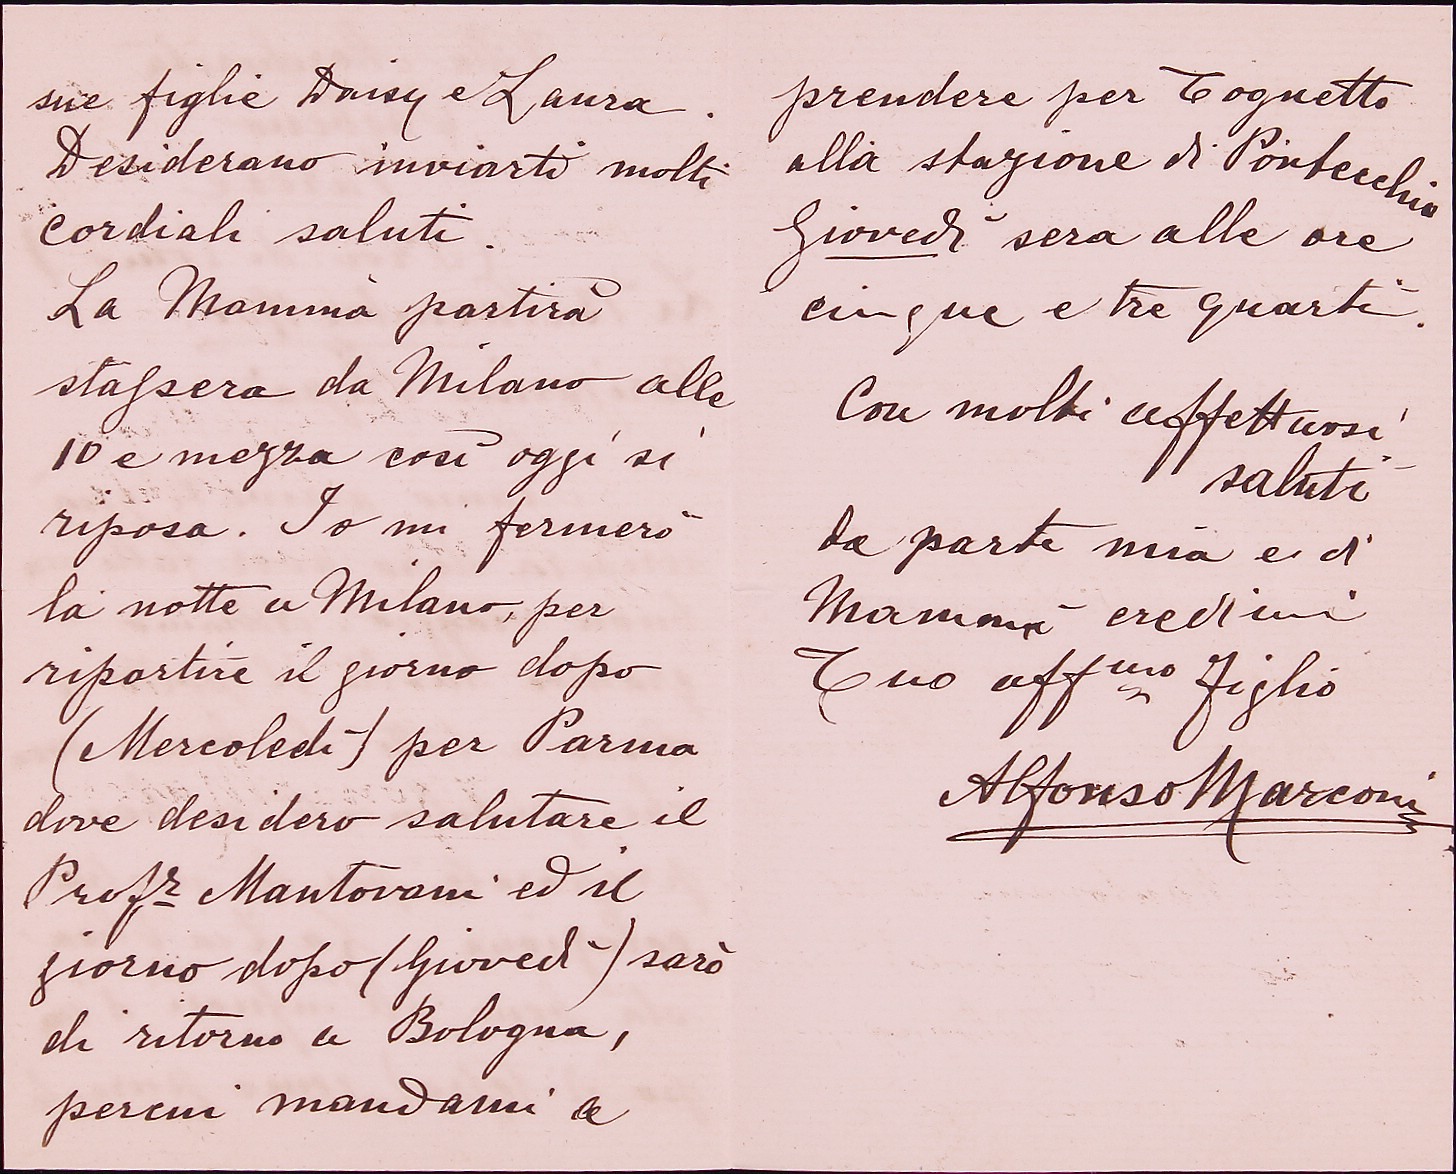 sue figlie Daisy e Laura.
Desiderano inviarti molti
cordiali saluti.
La Mammà partirà
stassera da Milano alle
10 e mezza così oggi si
riposa. Io mi fermerò
la notte a Milano, per
ripartire il giorno dopo
(Mercoledì) per Parma
dove desidero salutare il
Profr Mantovani ed il
giorno dopo (Giovedì) sarò
di ritorno a Bologna,
percui mandami a
prendere per Tognetto
alla stazione di Pontecchio
Giovedì sera alle ore
cinque e tre quarti.
Con molti affettuosi
saluti
da parte mia e di
Mammà credimi
Tuo affmo Figlio
Alfonso Marconi